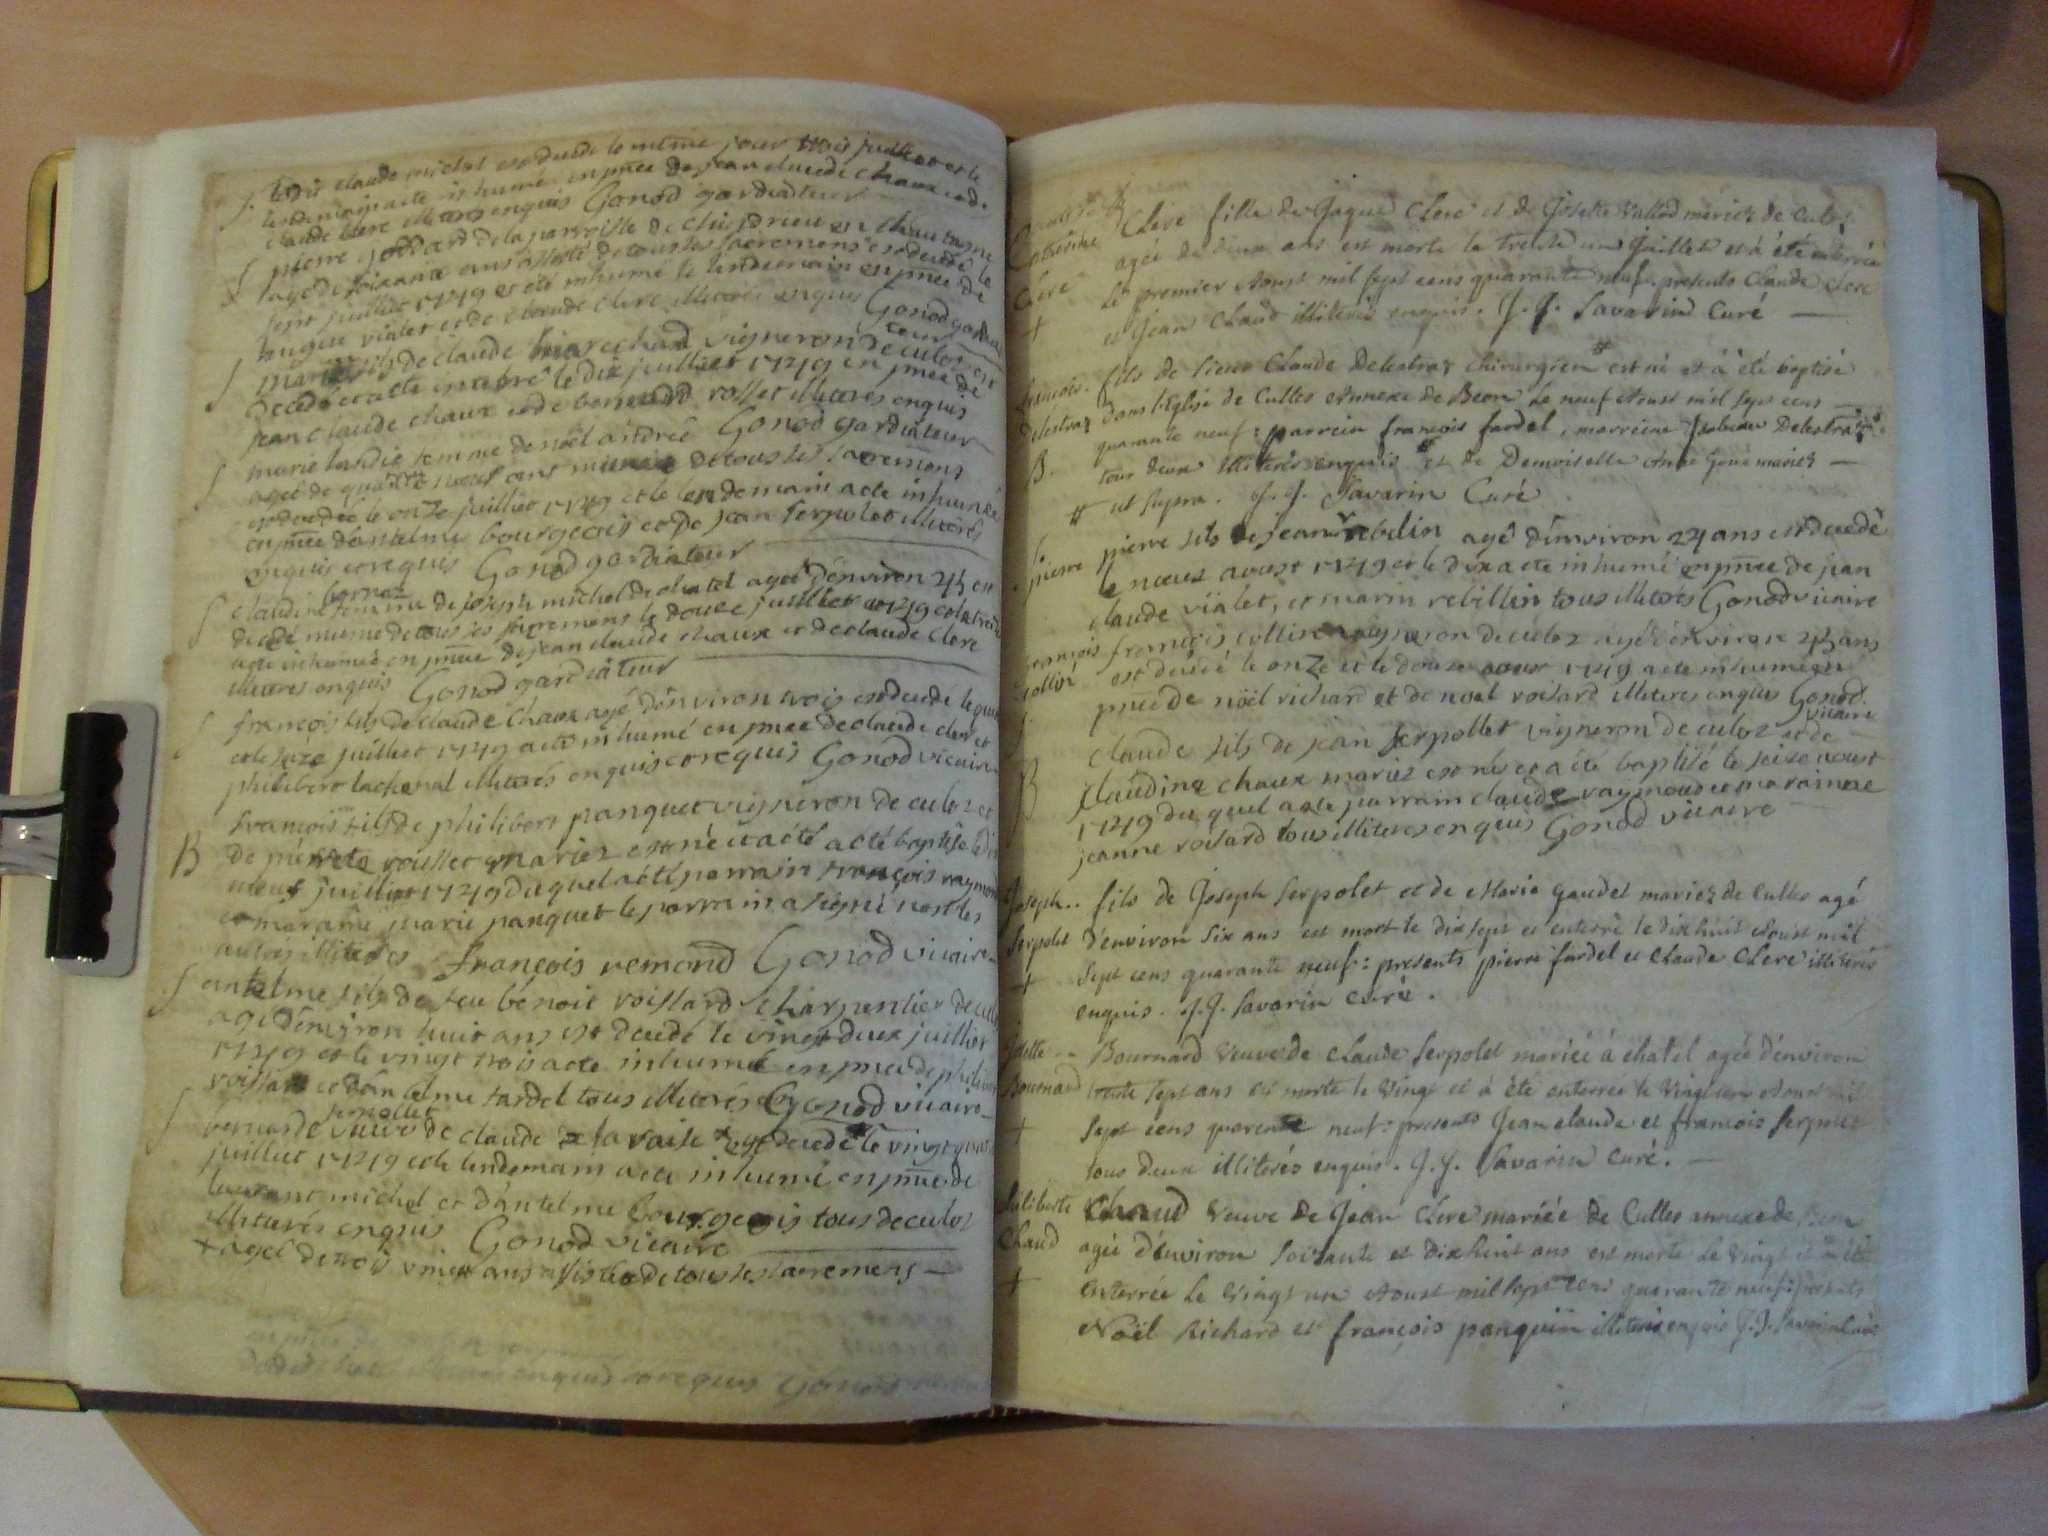 ledit claude michel est decede le meme jour trois juillet et le
lendemain a ete inhumé en pnce de jean claude chaux et de
claude clerc illiteres enquis Gonod gardiateur
pierre godard de la parroisse de chaudrieu en chautagne
agé de soixante ans assisté de tous les sacremens est decedé le
sept juillet 1749 et été inhumé le lendemain en pnce de
hugue vialet et de claude clerc illiteres enquis Gonod gardia
teur
fils de claude marechal vigneron de culoz est
decedé et a ete enterré le dix juillet 1749 en pnce de
jean claude chaux et de bernard rosset illiteres enquis
Gonod gardiateur
marie landie femme de noël andrée
agee de quarante neuf ans munie de tous les sacremens
est decedée le onze juillet 1749 et le lendemain a ete inhumée
en pnce d'antelme bourgeois et de jean serpolet illiterés
enquis et requis Gonod gardiateur
claudine femme de joseph michel de chatel agée d'environ 45 est
decedé munie de tous ses sacremens le douze juillet 1749 et le treize
a ete inhumée en pnce de jean claude chaux et de claude clerc
illiteres enquis Gonod gardiateur
françois fils de claude chaux agé d'environ trois est decede le quinze
et le seize juillet 1749 a ete inhumé en pnce de claude clerc et
philibert lachenal illiterés enquis et requis Gonod vicaire
françois fils de philibert panquet vigneron de culoz et
B de pierrette roisset mariez est né et a été a ete baptisé le dix
neuf juillet 1749 duquel a été parrain françois raymond
et maraine marie panquet le parrain a signé non les
autres illiteres françois remond Gonod vicaire
antelme fils de feu benoit roissard charpentier de culoz
agé d'environ huit ans est decedé le vingt deux juillet
1749 et le vingt trois a ete inhumé en pnce de philibert
roissard et d'antelme fardel tous illiterés Gonod vicaire
serpollet
bernarde veuve de claude de lavaise + est decedé le vingt quatre
juillet 1749 et le lendemain a ete inhumé en pnce de
laurent michel et d'antelme bourgeois tous de culoz
illiterés enquis Gonod vicaire
+ agee de trois vingt ans assistée de tous les sacremens
Catherine Clerc fille de Jaque Clerc et de Josette Vallod mariez de Culoz
Clerc agée de deux ans est morte le trente un Juillet et à été enterrée
+ le premier Aoust mil sept cens quarante neuf. presents Claude Clerc
et Jean Claud illiterés enquis. J. J. Savarin Curé
francois. fils de Sieur Claude Delestraz chirurgien # est né et à été baptisé
Delestraz dans l'Eglise de Culles Annexe de Beon le neuf Aoust mil sept cens
B. quarante neuf: parrein francois fardel, marreine Delestraz
tous deux illiterés enquis # et de Demoiselle Anne mariez
# ut supra. J. J. Savarin Curé
pierre pierre fils de jean rebilin agé d'environ 24 ans est decedé
le neuf aoust 1749 et le dix a ete inhumé en pnce de jean
claude vialet, et marin rebillin tous illiterés Gonod vicaire
françois françois collin vigneron de culoz agé d'environ 45 ans
collin est decedé le onze et le douze aoust 1749 a ete inhumé en
pnce de noël richard et de noel roisard illiteres enquis Gonod
vicaire
claude fils de jean serpollet vigneron de culoz et de
B claudine chaux mariez est né et a été baptisé le seize aoust
1749 duquel a ete parrain claude raymond et maraine
jeanne roisard tous illiteres enquis Gonod vicaire
Joseph.. fils de Joseph Serpolet et de Marie Gaudet mariez de Culles agé
Serpolet d'environ Six ans est mort le dix sept et enterré le dix huit Aoust mil
+ Sept cens quarante neuf: presents pierre fardel et Claude Clerc illiterés
enquis. J. J. Savarin Curé.
Josette .. Bournard Veuve de Claude Serpolet mariée à chatel agée d'environ
Bournard trente sept ans est morte le vingt et à été enterrée le vingt un Aoust mil
+ Sept cens quarente neuf: presents Jean claude et francois Serpolet
tous deux illiterés enquis. J. J. Savarin Curé.
philiberte Chaud Veuve de Jean Clerc mariée de Culles annexe de Beon
Chaud agée d'environ Soixante et dix huit ans est morte le Vingt et à été
+ enterrée le Vingt un Aoust mil sept cens quarante neuf: presents
Noël Richard et françois panquin illiterés enquis J. J. Savarin Curé